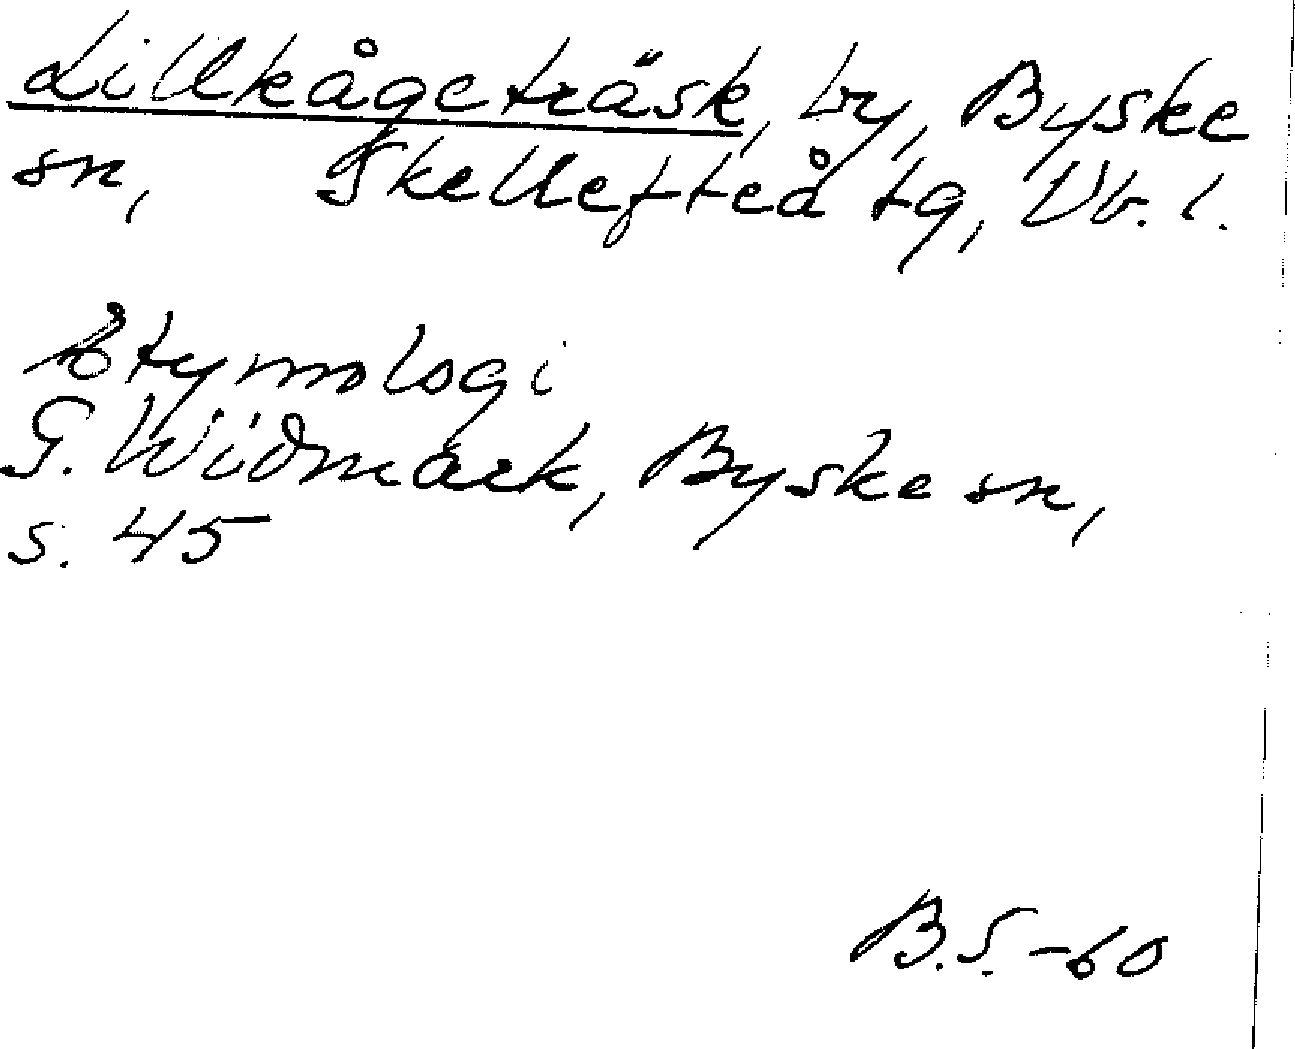 Lillkågeträsk, by, Byske
sn, Skellefteå tg, Vb. l.
Etymologi
G. Widmark, Byske sn,
s. 45
B.S.-60